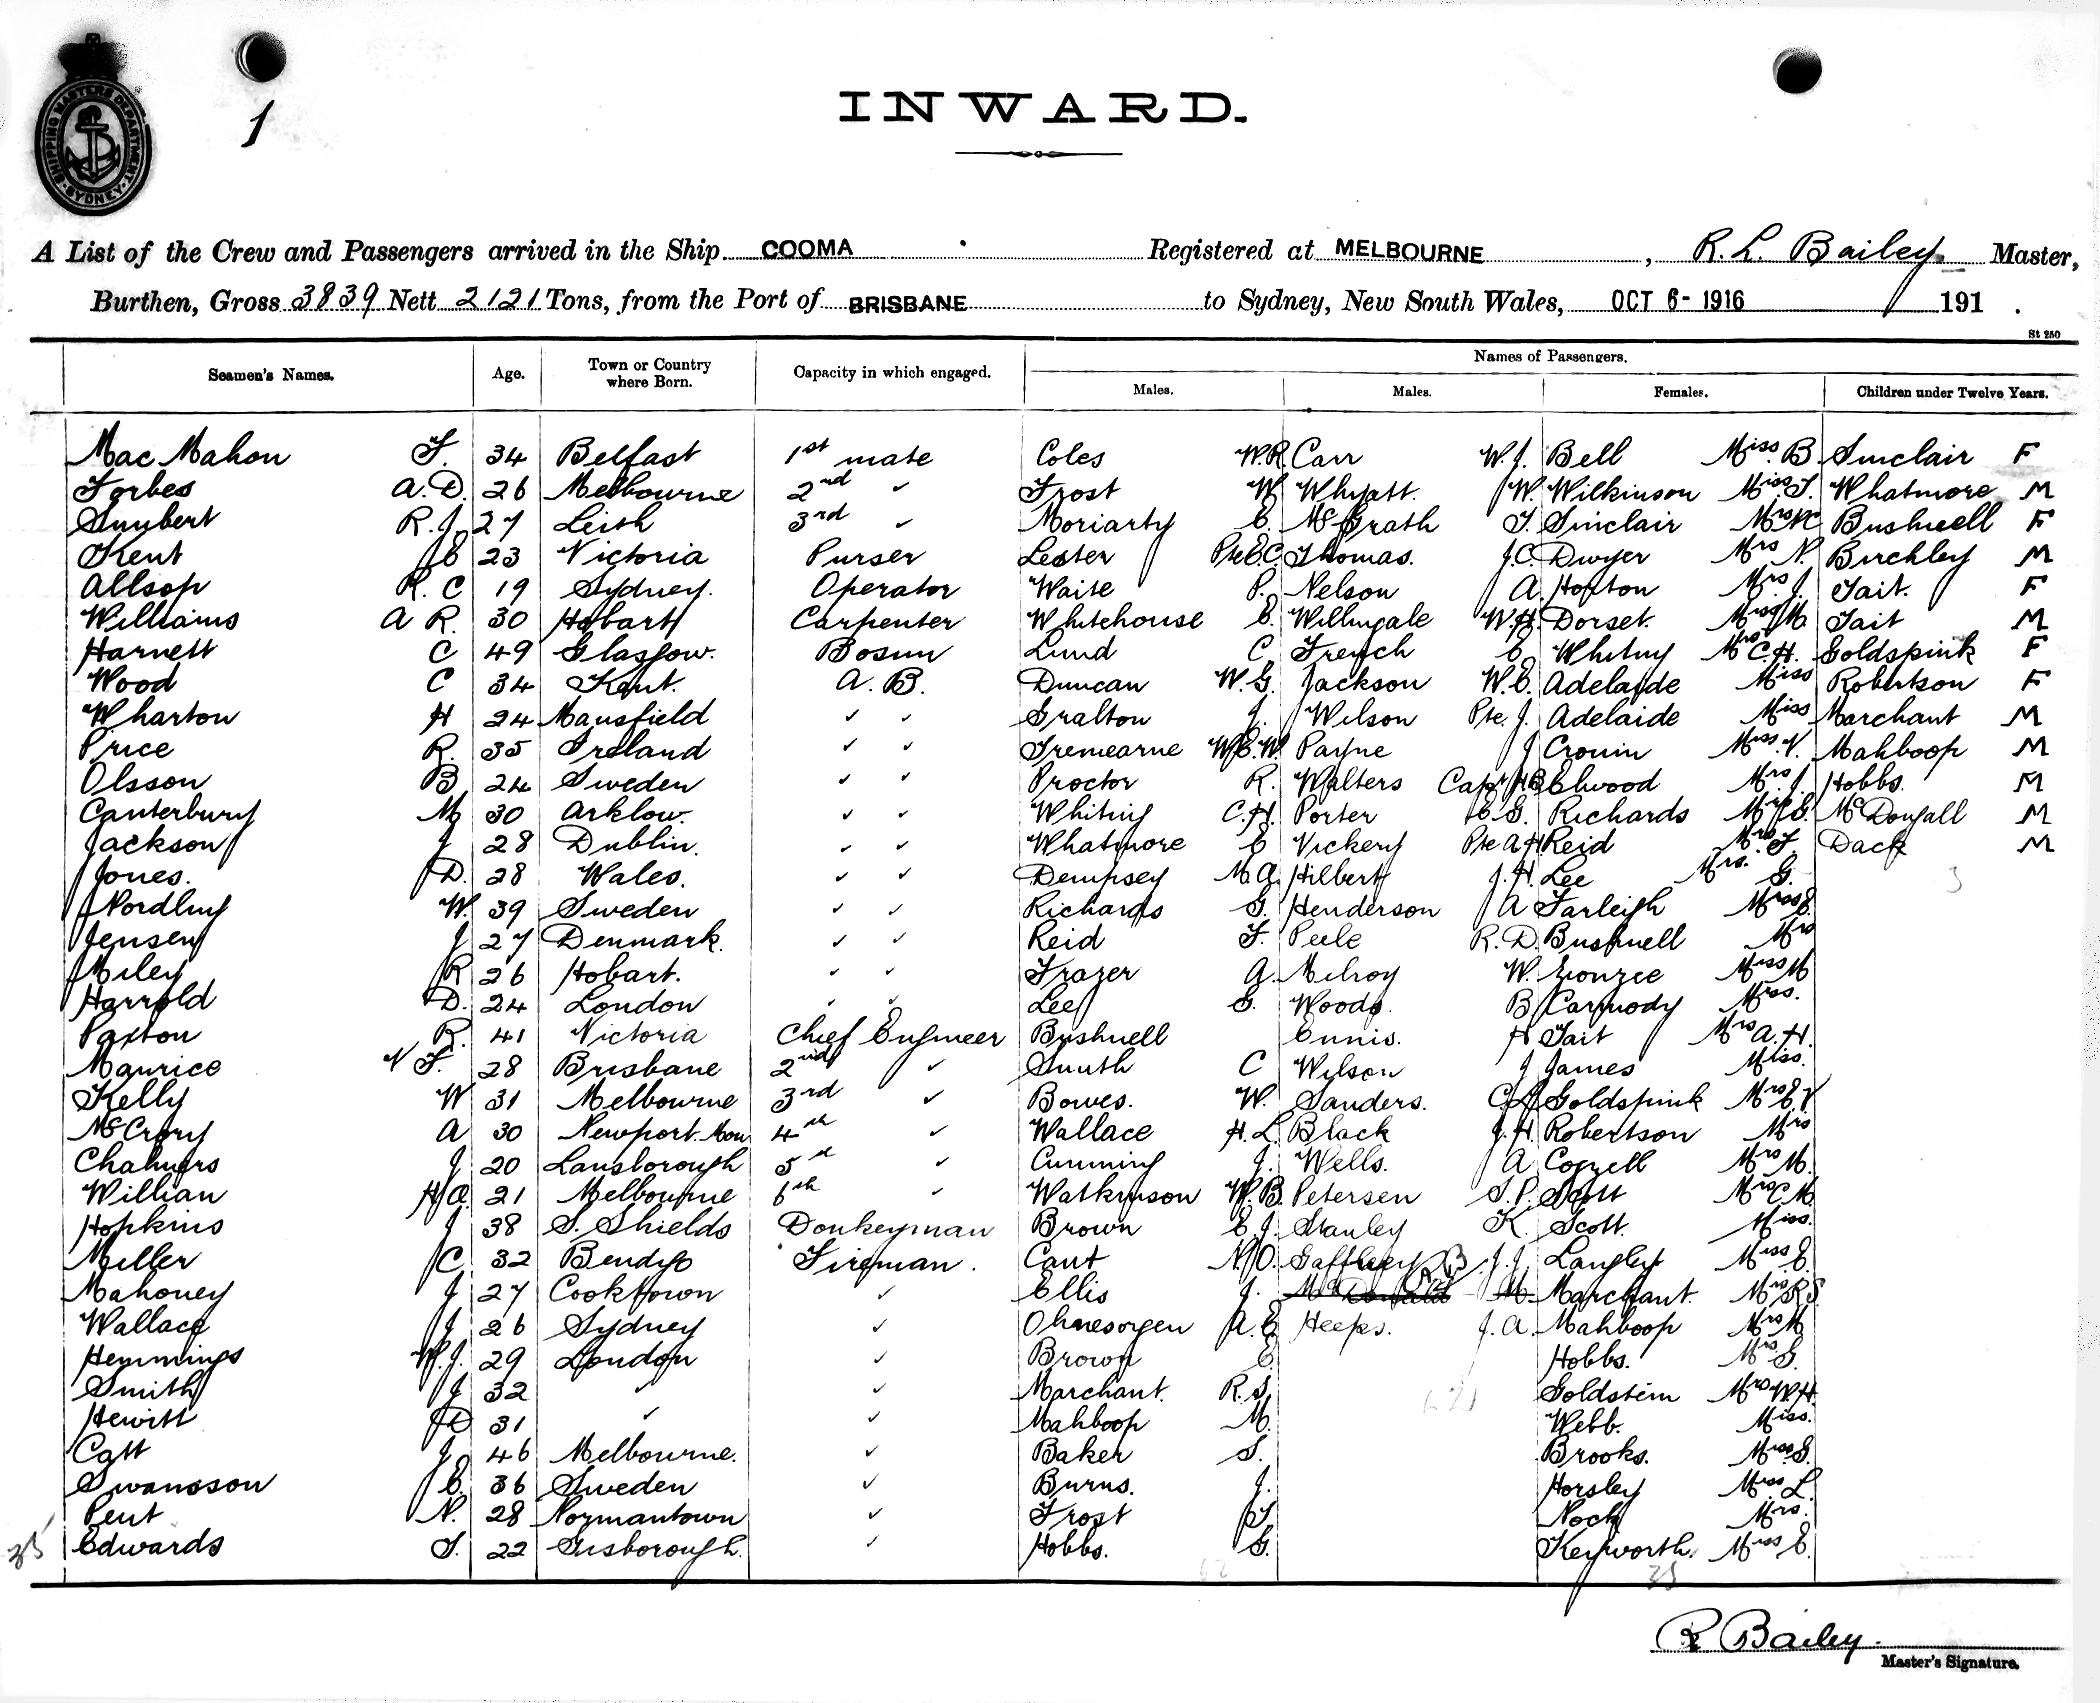 SHIPPING MASTERS DEPARTMENT
SYDNEY
1
INWARD.
A List of the Crew and Passengers arrived in the Ship COOMA Registered at MELBOURNE, R. L. Bailey Master,
Burthen, Gross 3839 Nett 2121 Tons, from the Port of BRISBANE to Sydney, New South Wales, OCT 6- 1916 191 .
St 250
Seamen's Names. Age. Town or Country where Born. Capacity in which engaged. Names of Passengers.
Males. Males. Females. Children under Twelve Years.
Mac Mahon F. 34 Belfast 1st mate Coles W.R. Carr W.J. Bell Miss B. Sinclair F
Forbes A.D. 26 Melbourne 2nd ✓ Frost W Whyatt. W. Wilkinson Miss Whatmore M
R.J. 27 Leith 3rd ✓ Moriarty E. McGrath T. Sinclair Mrs Bushnell F
Kent E 23 Victoria Purser Lester Pte E.C. Thomas. J.C. Dwyer Mrs N. Birchley M
Allsop R. C 19 Sydney. Operator Waite P. Nelson A. Hoxton Mrs J. Tait. F
Williams A R. 30 Hobart Carpenter Whitehouse E. Willingale W.H. Dorset. Miss M Tait M
Harnett C 49 Glasgow. Bosun Lund C French E Whiting Mrs C.H. Goldspink F
Wood C 34 Kent. A. B. Duncan W. G. Jackson W.E. Adelaide Miss Robertson F
Wharton H 24 Mansfield ✓ ✓ Gralton J. Wilson Pte. J. Adelaide Miss Marchant M
Price R. 35 Ireland ✓ ✓ Tremearne W.E.W. Payne J Cronin Miss V. Mahboop M
Olsson B 24 Sweden ✓ ✓ Proctor R. Walters Capt H.B. Elwood Mrs J. Hobbs. M
Canterbury M 30 Arklow. ✓ ✓ Whiting C.H. Porter E.G. Richards Mrs G. McDougall M
Jackson J 28 Dublin. ✓ ✓ Whatmore E Vickery Pte A H Reid Mrs F. Dack M
Jones. D. 28 Wales. ✓ ✓ Dempsey M.A. Hilbert J.H. Lee Mrs. G. 3
Nordling W. 39 Sweden ✓ ✓ Richards G. Henderson A Farleigh Miss E.
Jensen J 27 Denmark. ✓ ✓ Reid F. Peele R. D. Bushnell Mrs
Miley R 26 Hobart. ✓ ✓ Frazer A. Milroy W. Miss M
Harrold D. 24 London ✓ ✓ Lee G. Woods. B Carmody Miss.
Paxton R. 41 Victoria Chief Engineer Bushnell Ennis. H Tait Mrs A. H.
Maurice V F. 28 Brisbane 2nd ✓ Smith C Wilson J James Miss.
Kelly W 31 Melbourne 3rd ✓ Bowes. W. Sanders. Goldspink Mrs E V
McCrory A 30 Newport. Mon 4th ✓ Wallace H. L. Black J.H Robertson Mrs
Chalmers J 20 Lansborough 5 ✓ Cumming J. Wells. A Mrs M.
Willian H A. 21 Melbourne 6th ✓ Watkinson W. B. Petersen S. P. Scott Mrs C M
Hopkins J 38 S. Shields Donkeyman Brown E. J. Stanley K Scott. Miss.
Miller C. 32 Bendigo Fireman. Cant N O. Gaffney J. J. Langley Miss E.
Mahoney J 27 Cooktown ✓ Ellis J. McDonald M Marchant. Mrs R S
Wallace J 26 Sydney ✓ Ohnesorgen A. E Heeps. J. A. Mahboop Mrs M
Hemmings W.J. 29 London ✓ Brown E. Hobbs. Mrs G.
Smith J 32 ✓ ✓ Marchant. R. S Goldstein Mrs W.H.
Hewitt D 31 ✓ ✓ Mahboop M. Webb. Miss.
Catt J. 46 Melbourne. ✓ Baker S. Brooks. Miss G.
Swansson E. 36 Sweden ✓ Burns. J. Horsley Miss L.
Pent N. 28 Normantown ✓ Frost Nock Mrs.
35 Edwards S. 22 Gisborough. ✓ Hobbs. G. Kenworth. Miss E.
62 35
R Bailey.
Master's Signature.